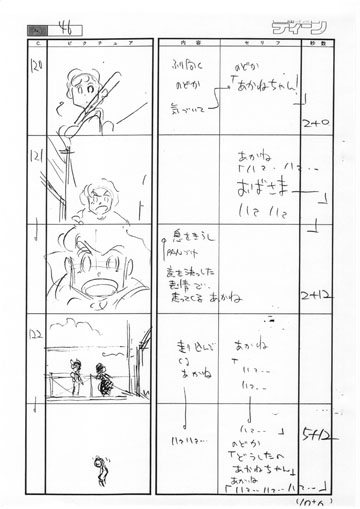 46
ディーン
C. ピクチュア 内容 セリフ 秒数
120
ふり向く
のどか
気づいて
のどか
「あかねちゃん!」
2+0
121
あかね
「ハァ…ハァ…
おばさま」
ハァ ハァ
息をきらし
意を決した
表情で…
走ってくる あかね
2+12
122
走り込んで
くる
あかね
ハァハァ…
あかね
「
ハァ…
ハァ…
ハァ…」
のどか
「どうしたの
あかねちゃん」
あかね
「ハァ…ハァ…ハァ…」
5+12